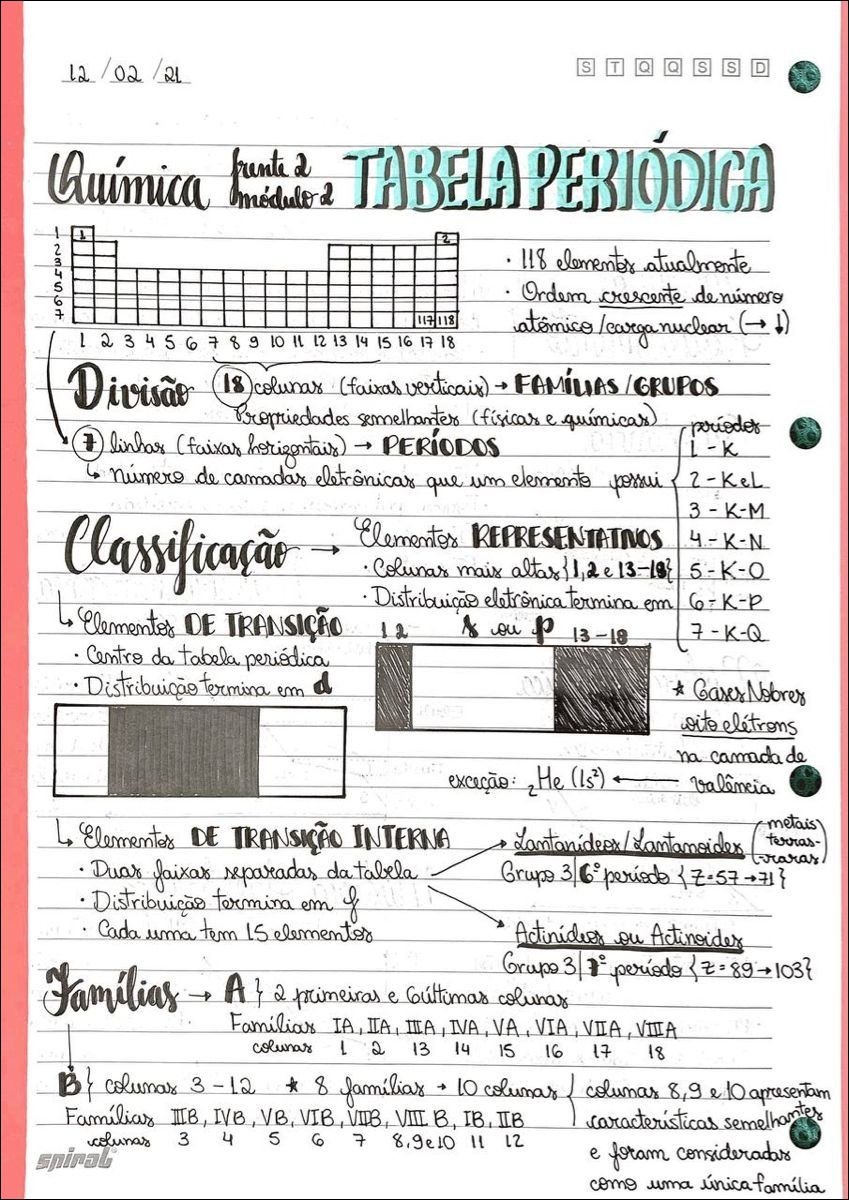 12/02/21
S T Q Q S S D
Química frente 2 módulo 2 TABELA PERIÓDICA
1
2
3
4
5
6
7
1
2
117 118
1 2 3 4 5 6 7 8 9 10 11 12 13 14 15 16 17 18
· 118 elementos atualmente
· Ordem crescente de número
atômico/carga nuclear (→ ↓)
Divisão 18 colunas (faixas verticais) → FAMÍLIAS/GRUPOS
Propriedades semelhantes (físicas e químicas)
7 linhas (faixas horizontais) → PERÍODOS
↳ número de camadas eletrônicas que um elemento possui {
períodos
1 - K
2 - K e L
3 - K-M
4 - K-N
5 - K-O
6 - K-P
7 - K-Q
Classificação → Elementos REPRESENTATIVOS
· Colunas mais altas {1, 2 e 13-18}
· Distribuição eletrônica termina em
s ou p
1 2
13-18
↳ Elementos DE TRANSIÇÃO
· Centro da tabela periódica
· Distribuição termina em d
★ Gases Nobres
oito elétrons
na camada de
valência
exceção: ₂He (1s²) ←
↳ Elementos DE TRANSIÇÃO INTERNA
· Duas faixas separadas da tabela
· Distribuição termina em f
· Cada uma tem 15 elementos
Lantanídeos/Lantanoides (metais terras-raras)
Grupo 3|6º período {Z=57→71}
Actinídeos ou Actinoides
Grupo 3|7º período {Z=89→103}
Famílias → A } 2 primeiras e 6 últimas colunas
Famílias IA, IIA, IIIA, IVA, VA, VIA, VIIA, VIIIA
colunas 1 2 13 14 15 16 17 18
B } colunas 3-12 ★ 8 famílias → 10 colunas {
Famílias IIIB, IVB, VB, VIB, VIIB, VIII B, IB, IIB
colunas 3 4 5 6 7 8,9e10 11 12
colunas 8,9 e 10 apresentam
características semelhantes
e foram consideradas
como uma única família
spiral